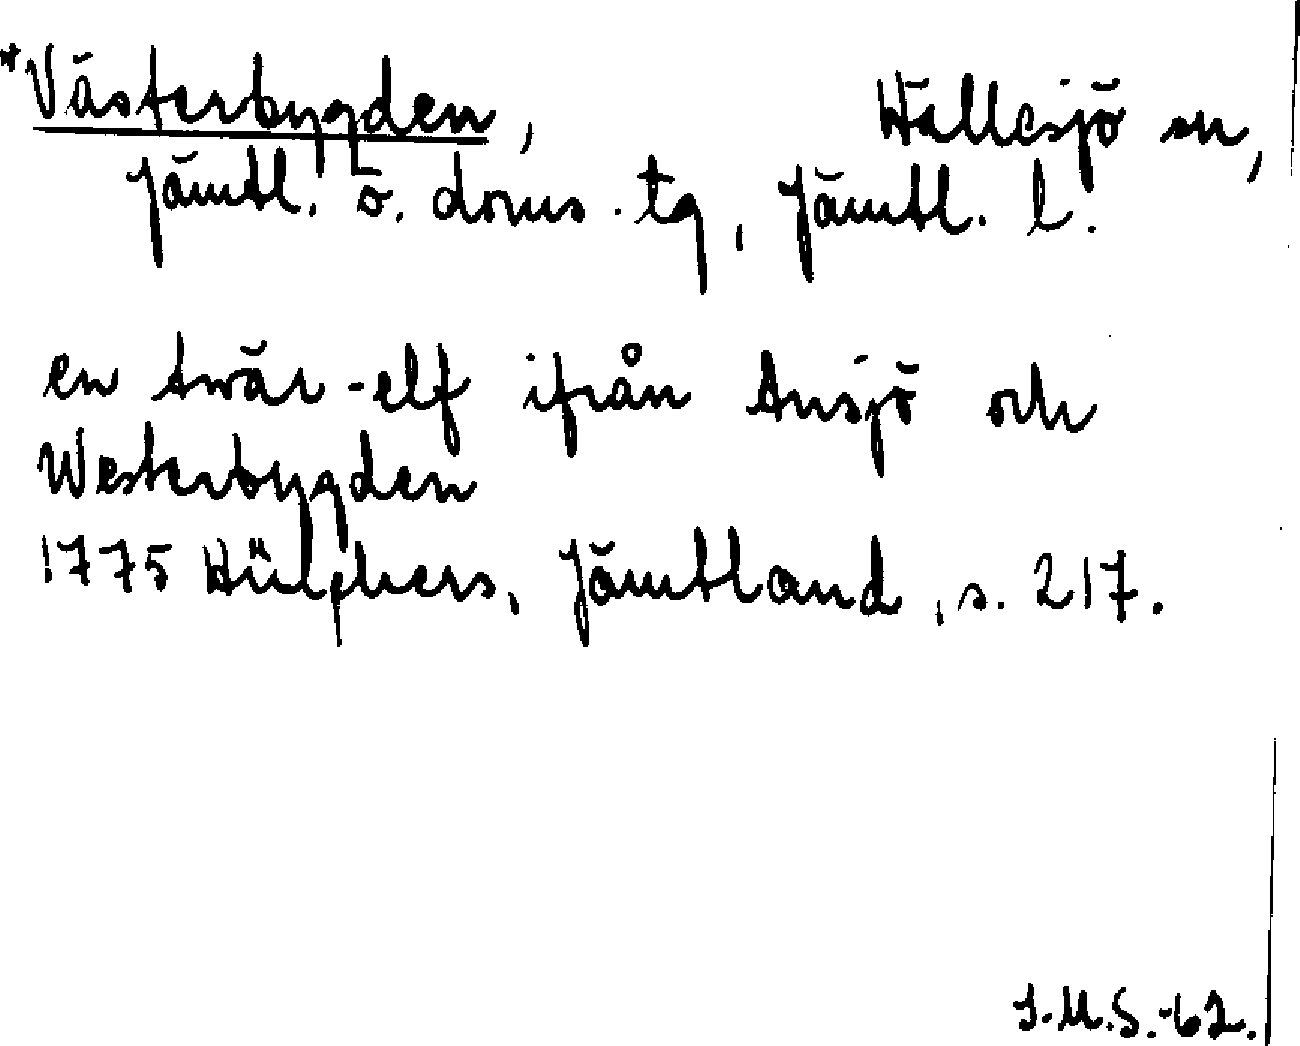 *Västerbygden, Hällesjö sn,
Jämtl. ö. doms. tg, Jämtl. l.
en twär-elf ifrån Ansjö och
Westerbygden
1775 Hülphers, Jämtland, s. 217.
I.M.S.-62.